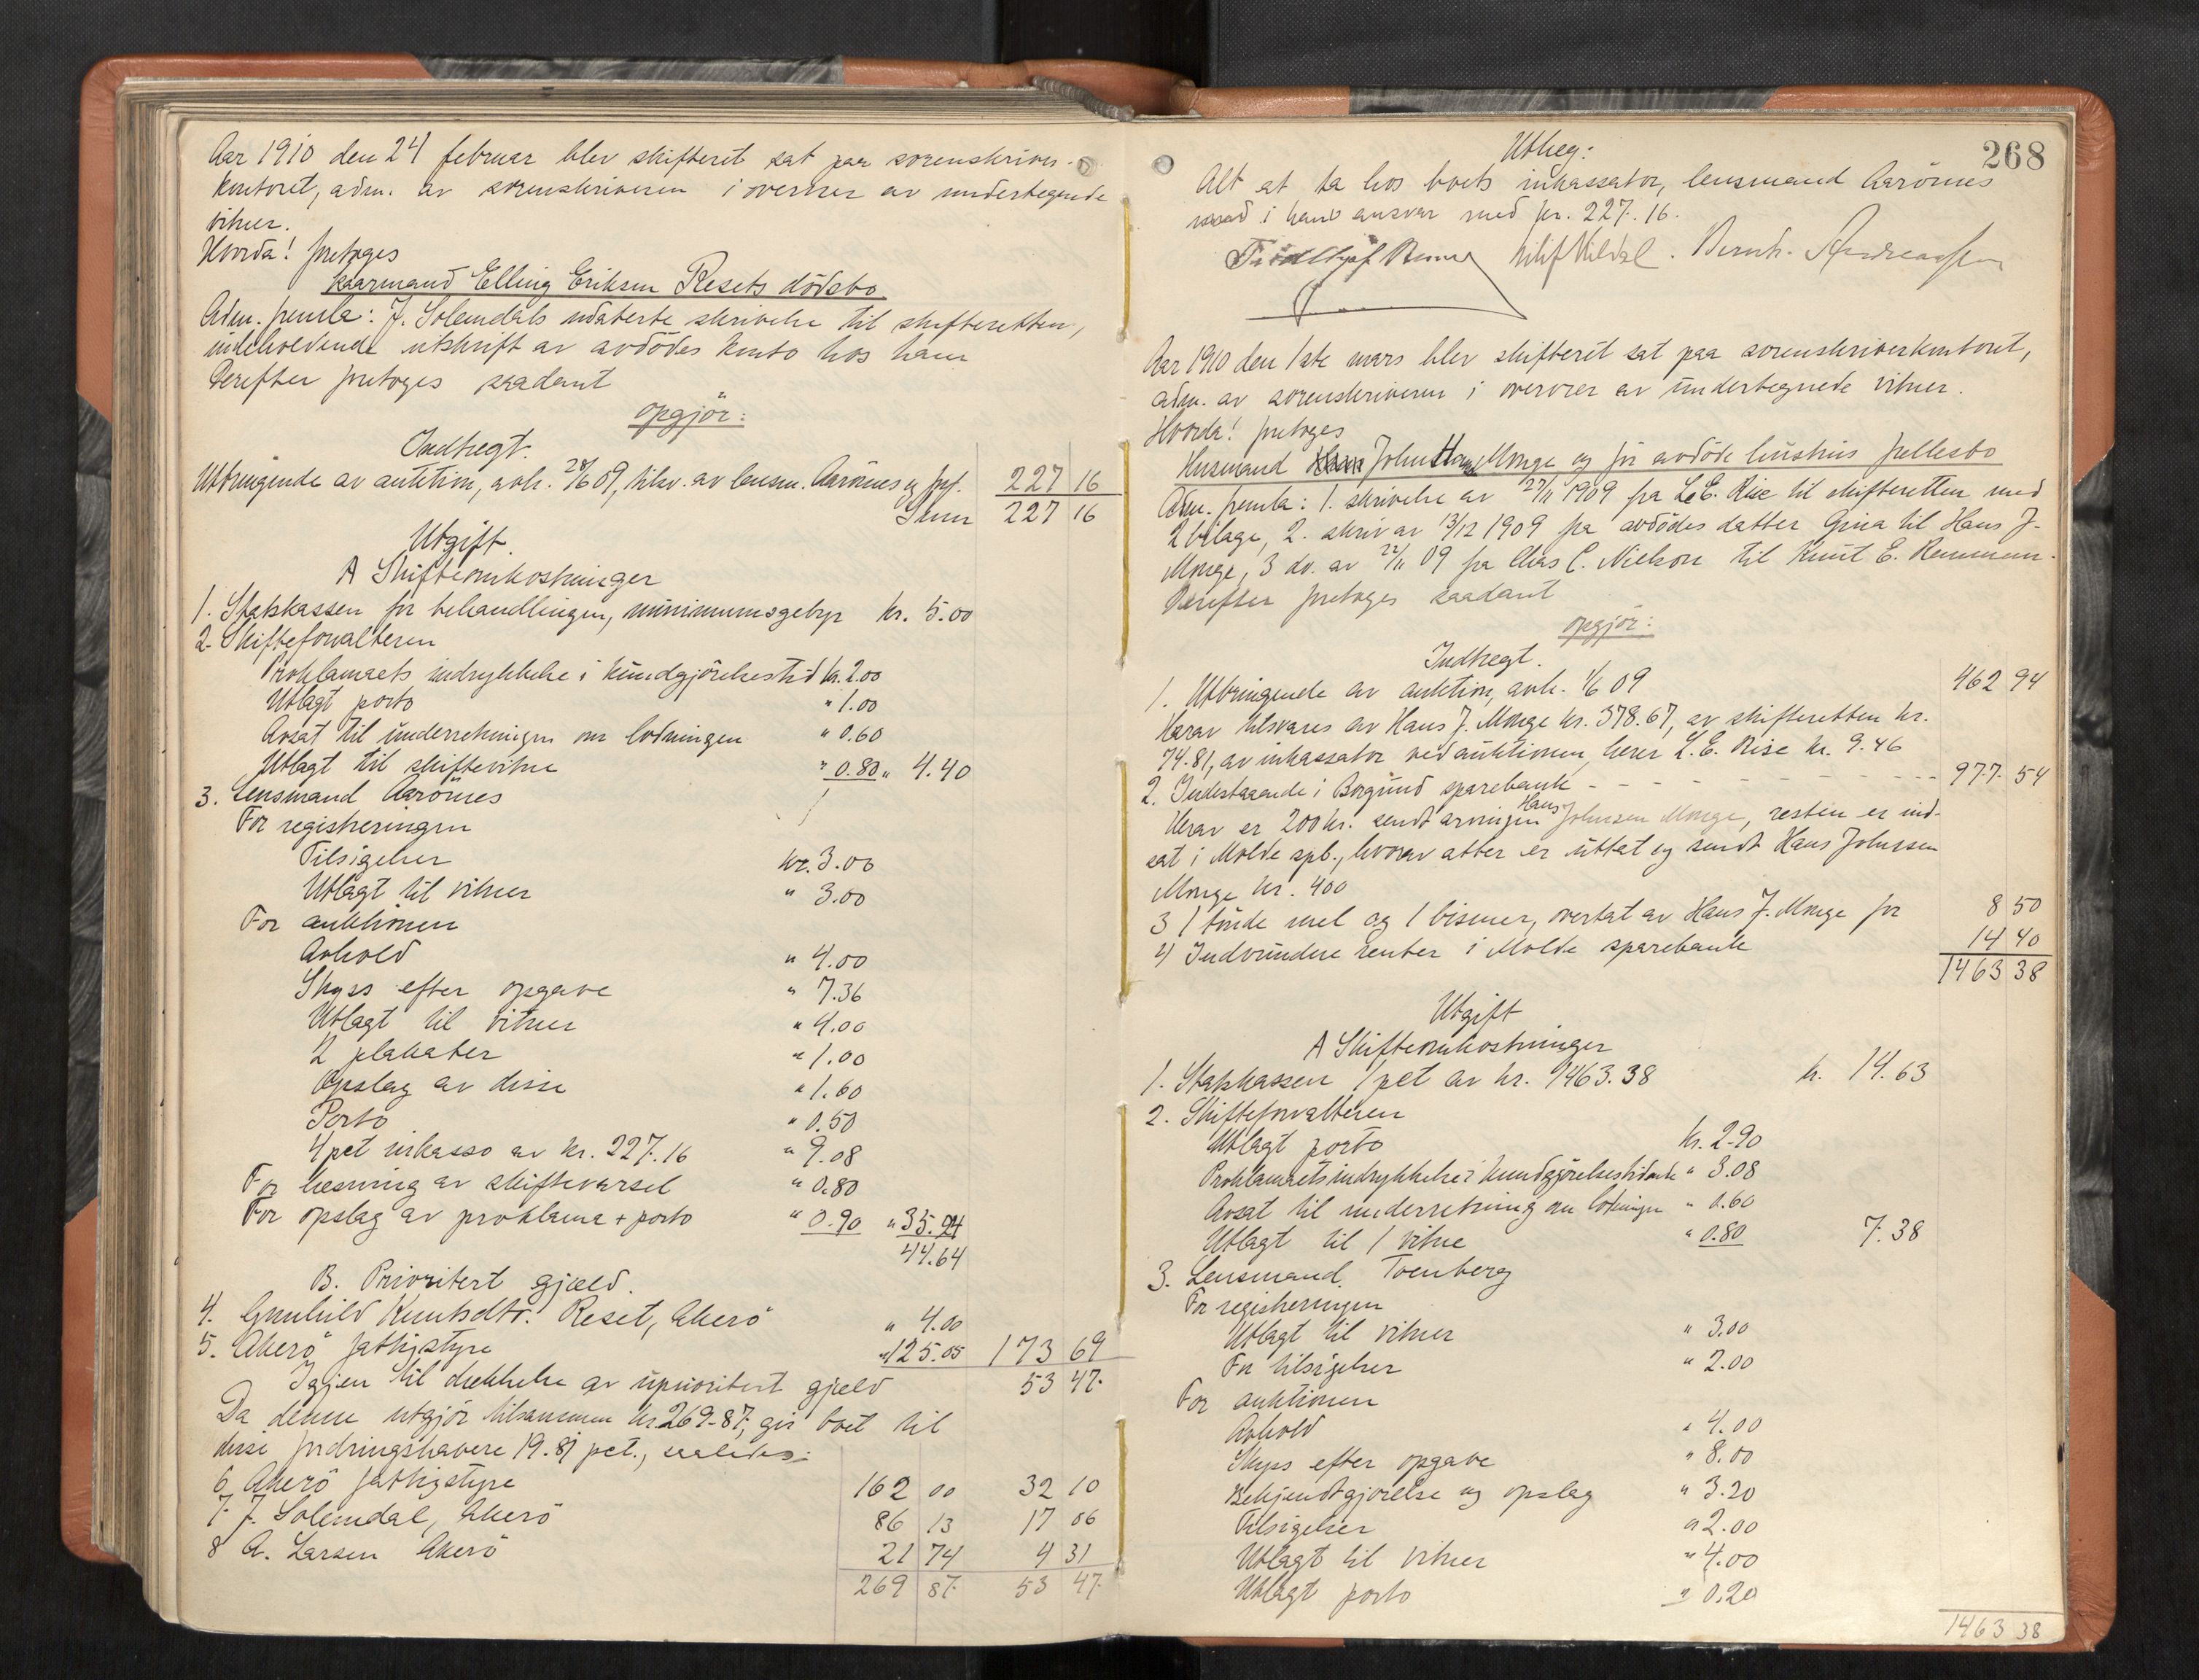 Aar 1910 den 24 februar blev skifteret sat paa sorenskriver-
kontoret, adm. av sorenskriveren i overvær av undertegnede
vitner.
Hvorda! foretoges
kaarmand Elling Eriksen Resets dödsbo
Adm. fremla: J. Solemdals udaterte skrivelse til skifteretten,
indeholdende utskrift av avdödes konto hos ham
Derefter foretoges saadant
opgjör:
Indtægt.
Utbringende av auktion, avh. 28/6 09, tilsv. av lensm. Aarönes 227 16
Sum 227 16
Utgift.
A Skifteomkostninger
1. Statskassen for behandlingen, minimumsgebyr kr. 5.00
2. Skifteforvalteren
Proklamaets indrykkelse i kundgjörelsestid kr. 2.00
Utlagt porto " 1.00
Avsat til underretningen om lodningen " 0.60
Utlagt til skiftevitne " 0.80 " 4.40
3. Lensmand Aarönes
For registreringen
Tilsigelser kr. 3.00
Utlagt til vitner " 3.00
For auktionen
Avhold " 4.00
Skyss efter opgave " 7.36
Utlagt til vitner " 4.00
2 plakater " 1.00
Opslag av disse " 1.60
Porto " 0.50
4 pct inkasso av kr. 227.16 " 9.08
For læsning av skiftevarsel " 0.80
For opslag av proklama + porto " 0.90 " 35.24
44.64
B. Prioritert gjæld.
4. Gunhild Knutsdtr. Reset, Akerö " 4.00
5. Akerö fattigstyre " 125.05 173 69
Igjen til dækkelse av uprioritert gjæld 53 47
Da denne utgjör tilsammen kr. 269.87, gir boet til
disse fordringshavere 19.81 pct., saaledes:
6 Akerö fattigstyre 162 00 32 10
7. J. Solemdal, Akerö 86 13 17 06
8 A. Larsen Akerö 21 74 4 31
269 87 53 47
268
Utlæg:
Alt at ta hos boets inkassator, lensmand Aarönes
i hans ansvar med kr. 227.16.
Bernh. Andreassen
Aar 1910 den 1ste mars blev skifteret sat paa sorenskriverkontoret,
adm. av sorenskriveren i overvær av undertegnede vitner.
Hvorda! foretoges
Husmand John Hans. Monge og för avdöde hustrus fællesbo
Adm. fremla: 1. skrivelse av 27/11 1909 fra L. E. Rise til skifteretten med
2 bilage, 2. skriv av 13/12 1909 fra avdödes datter Gina til Hans J.
Monge, 3 do. av 22/11 09 fra Chas C. Nielson til Knut E. Remmem.
Derefter foretoges saadant
opgjör:
Indtægt.
1. Utbringende av auktion, avh. 1/6 09 462 94
Herav tilsvares av Hans J. Monge kr. 378.67, av skifteretten kr.
74.81, av inkassator ved auktionen, herr L. E. Rise kr. 9.46
2. Indestaaende i Borgund sparebank - - - 977 54
Herav er 200 kr. sendt arvingen Hans Johnsen Monge, resten er ind-
sat i Molde spb., hvorav atter er uttat og sendt Hans Johnsen
Monge kr. 400
3 1 tönde mel og 1 bismer, overtat av Hans J. Monge for 8 50
4 Indvundne renter i Molde sparebank 14 40
1463 38
Utgift
A Skifteomkostninger
1. Statskassen 1 pct av kr. 1463.38 kr. 14.63
2. Skifteforvalteren
Utlagt porto kr. 2.90
Proklamaets indrykkelse i kundgjörelsestidende " 3.08
Avsat til underretning om lodningen " 0.60
Utlagt til 1 vitne " 0.80 7.38
3. Lensmand Toenberg
For registreringen
Utlagt til vitner " 3.00
For tilsigelser " 2.00
For auktionen
Avhold " 4.00
Skyss efter opgave " 8.00
Bekjendtgjörelse og opslag " 3.20
Tilsigelser " 2.00
Utlagt til vitner " 4.00
Utlagt porto " 0.20
1463 38